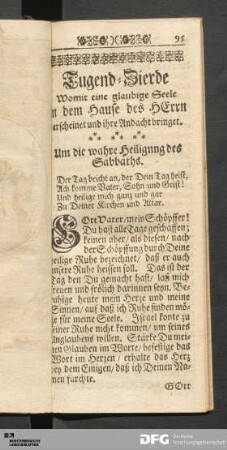 95
Tugend-Zierde
Womit eine glaubige Seele
n dem Hause des HErrn
erscheinet und ihre Andacht bringet.
Um die wahre Heiligung des
Sabbaths.
Der Tag bricht an, der Dein Tag heist,
Ach komme Vater, Sohn und Geist!
Und heilige mich ganz und gar
Zu Deiner Kirchen und Altar.
GOtt Vater, mein Schöpffer!
Du hast alle Tage geschaffen;
keinen aber, als diesen, nach
der Schöpffung durch Deine
eilige Ruhe bezeichnet, daß er auch
nsere Ruhe heissen soll. Das ist der
Tag den Du gemacht hast, laß mich
reuen und frölich darinnen seyn. Be-
uhige heute mein Herz und meine
Sinnen, auf daß ich Ruhe finden mö-
e für meine Seele. Israel konte zu
einer Ruhe nicht kommen, um seines
Unglaubens willen. Stärke Du mei-
nen Glauben im Worte, befestige das
Wort im Herzen, erhalte das Herz
bey dem Einigen, daß ich Deinen Na-
men fürchte.
GOtt
DFG
Deutsche
Forschungsgemeinschaft